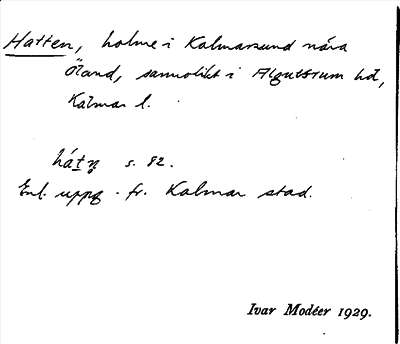 Hatten, holme i Kalmarsund nära
Öland, sannolikt i Algutsrum hd,
Kalmar l.
hátṇ s. 82.
Enl. uppg. fr. Kalmar stad.
Ivar Modéer 1929.